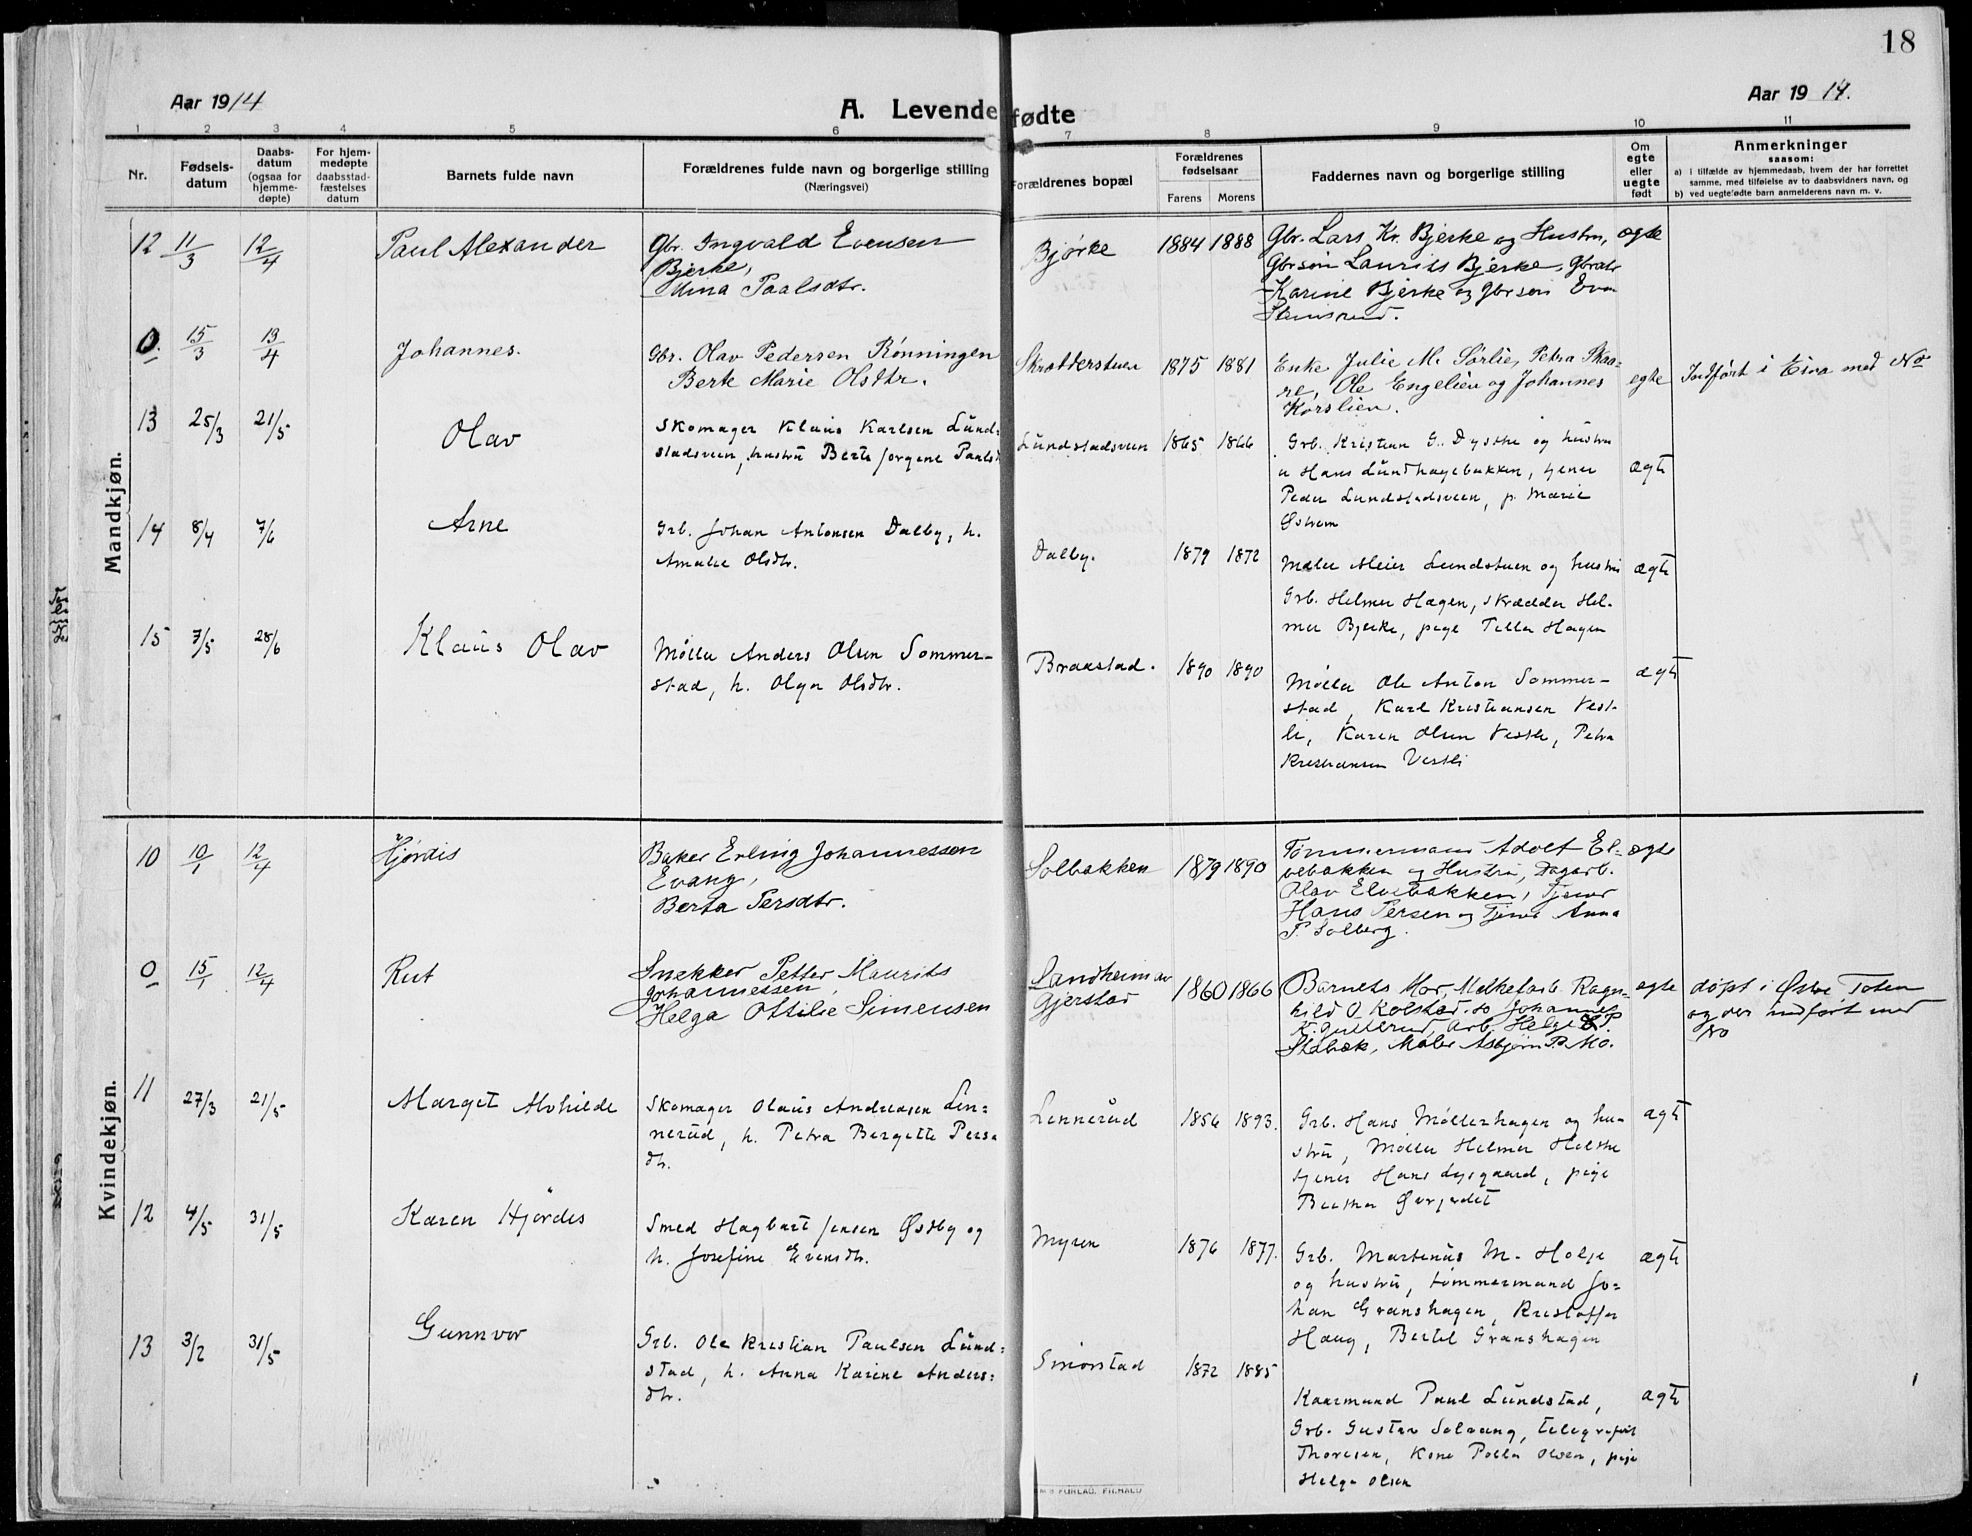 18
Aar 1914
A. Levende fødte
Aar 1914.
1 2 3 4 5 6 7 8 9 10 11
Nr.
Fødsels-
datum
Daabs-
datum
(ogsaa for
hjemme-
døpte)
For hjem-
medøpte
daabsstad-
fæstelses
datum
Barnets fulde navn
Forældrenes fulde navn og borgerlige stilling
(Næringsvei)
Forældrenes bopæl
Forældrenes
fødselsaar
Farens Morens
Faddernes navn og borgerlige stilling
Om
egte
eller
uegte
født
Anmerkninger
saasom:
a) i tilfælde av hjemmedaab, hvem der har forrettet
samme, med tilføielse av to daabsvidners navn, og
b) ved uegtefødte barn anmelderens navn m. v.
Mandkjøn.
12 11/3 12/4 Paul Alexander
Gbr. Ingvald Evensen
Bjerke,
Paalsdtr.
Bjørke 1884 1888
Gbr. Lars Kr. Bjerke og Hustru,
Gbrsøn Laurits Bjerke, Gbrdtr
Karine Bjerke og Gbrsøn
egte
0. 15/3 13/4 Johannes.
Gbr. Olav Pedersen Rønningen
Berte Marie Olsdtr.
1875 1881
Enke Julie M. Sørlie, Petra Skaa-
re, Ole Engelien og Johannes
Korslien.
egte
Indført i Eina med No
13 25/3 21/5 Olav
Skomager Klaus Karlsen Lund-
stadsveen, hustru Berte Jørgine
Lundstadsveen 1865 1866
Grb. Kristian G. Dysthe og hustru
u Hans Lundhagebakken, tjener
Peder Lundstadsveen, p. Marie
ægte
14 8/4 7/6 Arne
Grb. Johan Antonsen Dalby, h.
Amalie Olsdtr.
Dalby. 1879 1872
Maler Meier Lundstuen og hustru
Grb. Helmer Hagen, skrædder Hel-
mer Bjerke, pige Tilla Hagen
ægte
15 7/5 28/6 Klaus Olav
Møller Anders Olsen Sommer-
stad, h. Olga Olsdtr.
Braastad. 1890 1890
Møller Ole Anton Sommer-
stad, Karl Kristiansen Vest-
li, Karen Olsen Vestli, Petra
Kristiansen Vestli
ægte
Kvindekjøn.
10 10/1 12/4 Hjørdis
Baker Erling Johannessen
Evang,
Berta Persdtr.
Solbakken 1879 1890
Tømmermand Adolf El-
vebakken og Hustru, Dagarb.
Olav Elvebakken, Tjener
Hans Persen og Tjener Anna
P. Solberg.
egte
0 15/1 12/4 Rut
Snekker Petter Maurits
Johannessen,
Helga Ottilie Simensen
Sandheim av
Gjerstad 1860 1866
Barnets Mor, Melkearb. Ragn-
hild O. Kolstad,
K. Gullerud, Arb. Helge P.
Stabæk, Maler Asbjørn P. Mo.
egte
døpt i Østre Toten
og der indført med
No
11 27/3 21/5 Marget Alvhilde
Skomager Olaus Andreasen Lin-
nerud, h. Petra Bergitte Pers-
dtr.
Lennerud 1856 1893.
Grb. Hans Møllerhagen og hu-
stru, Møller Helmer Holthe
tjener Hans Lysgaard, pige
Bertha
ægte
12 4/5 31/5 Karen Hjørdis
Smed Hagbart Jensen Østby og
h. Josefine Evensdtr.
Myren 1876 1877.
Grb. Martenus M. Holje
og hustru, tømmermand Jo-
han Granshagen, Kristoffer
Haug, Bertil Granshagen
ægte
13 3/2 31/5 Gunnvor
Grb. Ole Kristian Paulsen Lund-
stad, h. Anna Karine Anders-
dtr.
Smørstad 1872 1885
Kaarmand Paul Lundstad,
Grb. Gustav Solvang, telegrafist
Thoresen, Kone Polla Olsen, pige
Helga Olsen
ægte